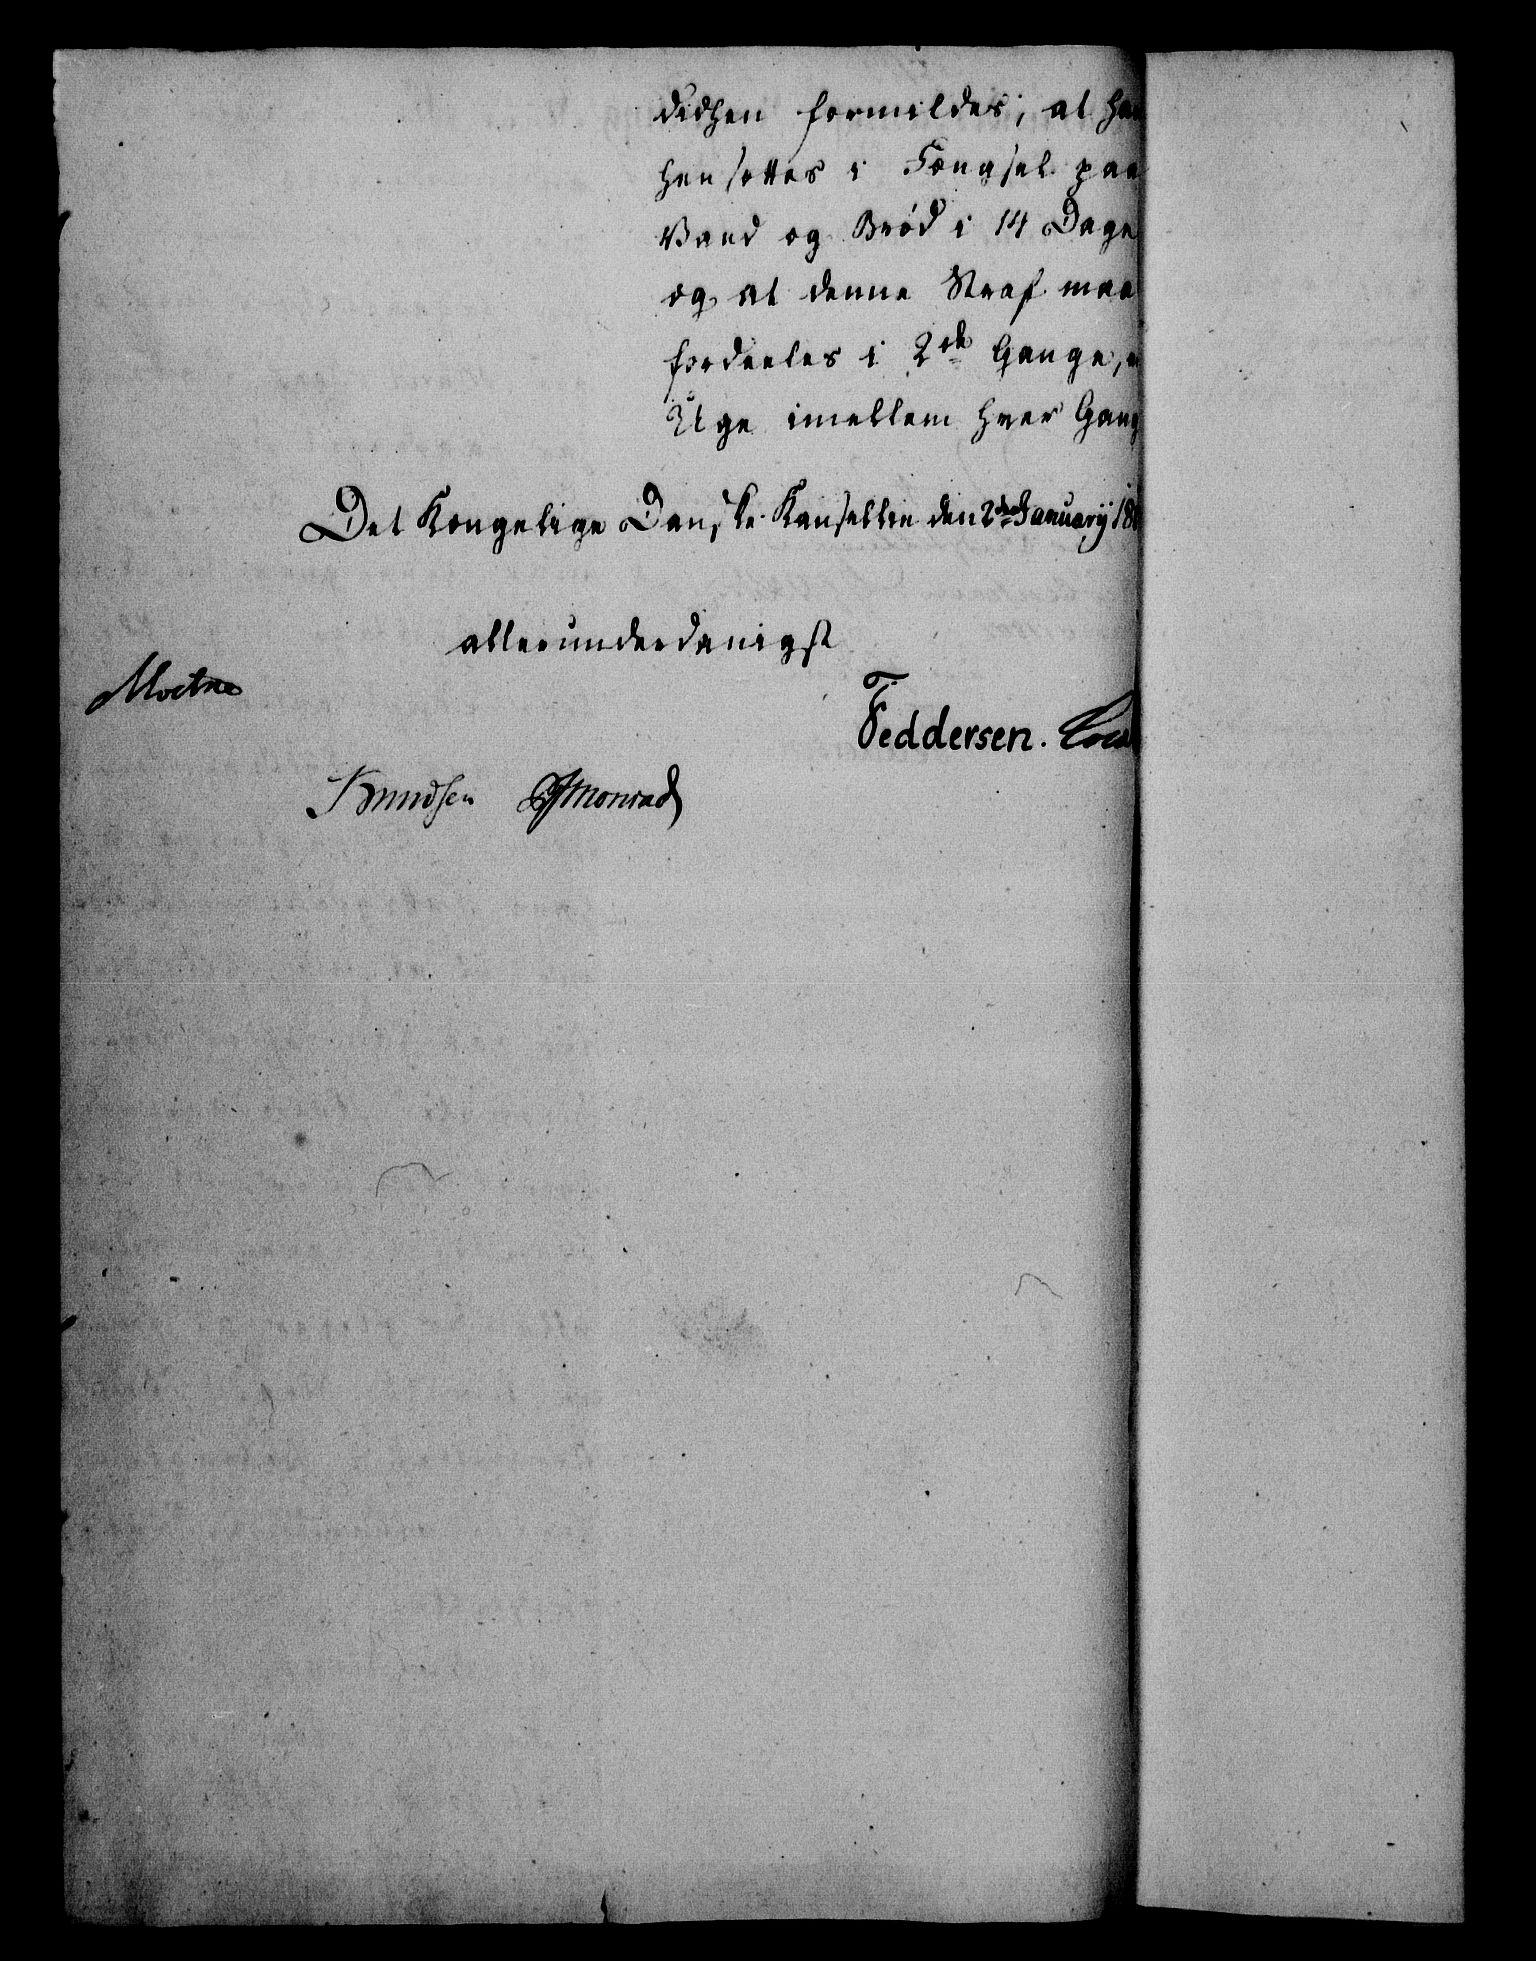 didhen formildes; at han
hensættes i Fængsel paa
Vand og Brød i 14 Dage
og at denne Straf maa
fordeeles i 2de Gange,
Uge imellem hver Gang
Det Kongelige Danske Kanzellie den 2den Januarij 18
allerunderdanigst
Moltke
Feddersen.
Knudsen Monrad